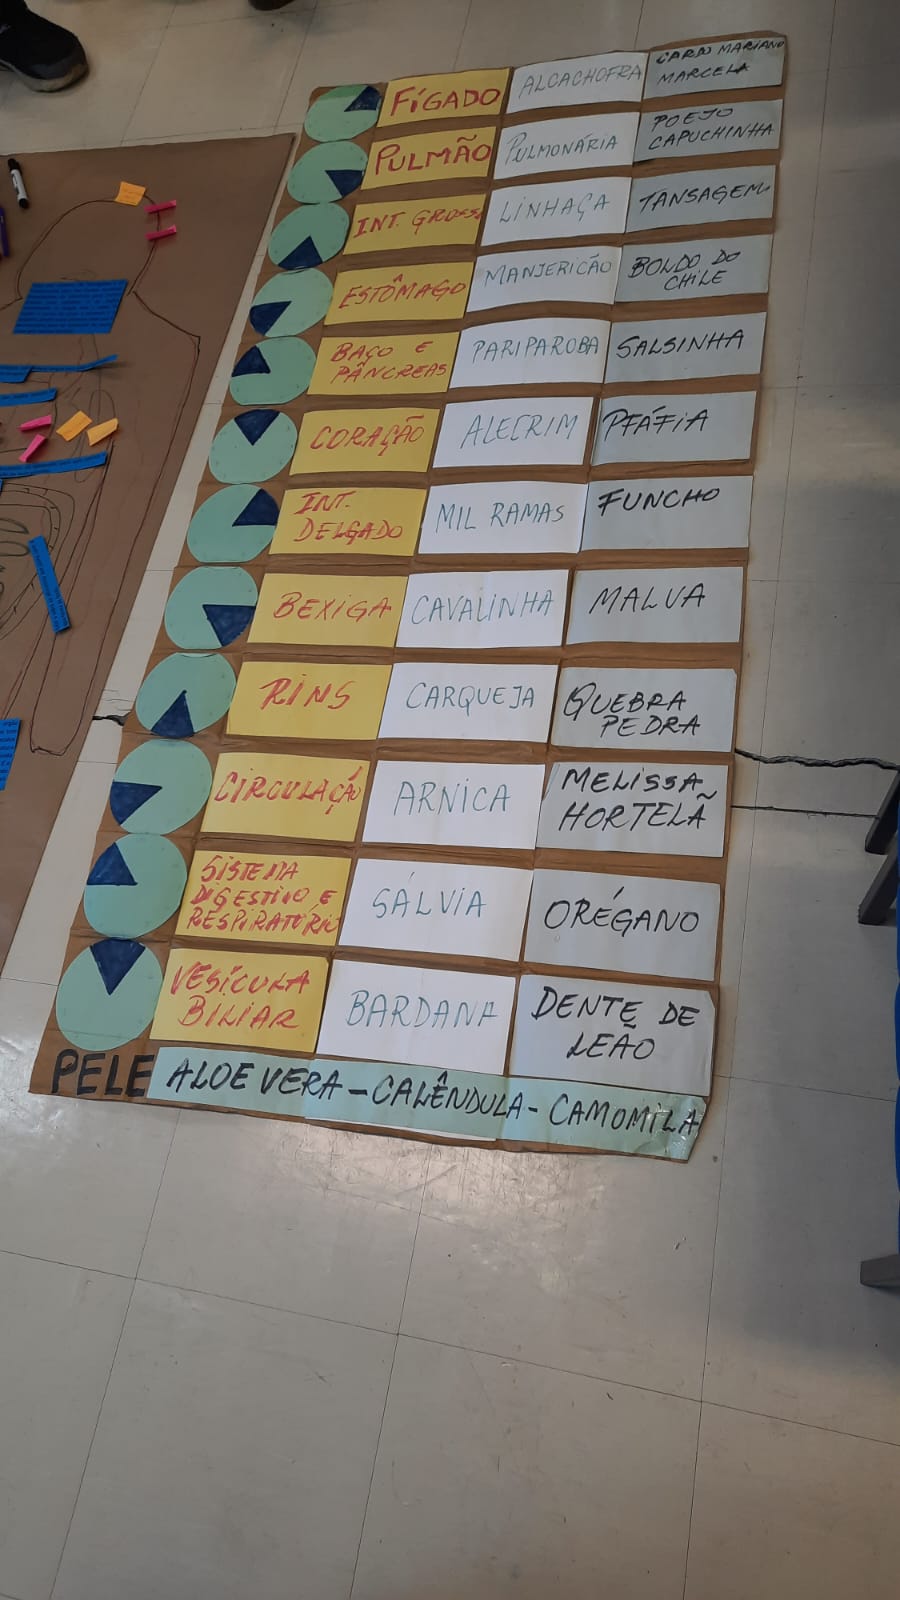 FÍGADO ALCACHOFRA CARDO MARIANO
MARCELA
PULMÃO PULMONÁRIA POEJO
CAPUCHINHA
INT. GROSSO LINHAÇA TANSAGEM
ESTÔMAGO MANJERICÃO BOLDO DO
CHILE
BAÇO E
PÂNCREAS PARIPAROBA SALSINHA
CORAÇÃO ALECRIM PFÁFIA
INT.
DELGADO MIL RAMAS FUNCHO
BEXIGA CAVALINHA MALVA
RINS CARQUEJA QUEBRA
PEDRA
CIRCULAÇÃO ARNICA MELISSA
HORTELÃ
SISTEMA
DIGESTIVO E
RESPIRATÓRIO SÁLVIA ORÉGANO
VESÍCULA
BILIAR BARDANA DENTE DE
LEÃO
PELE ALOE VERA - CALÊNDULA - CAMOMILA